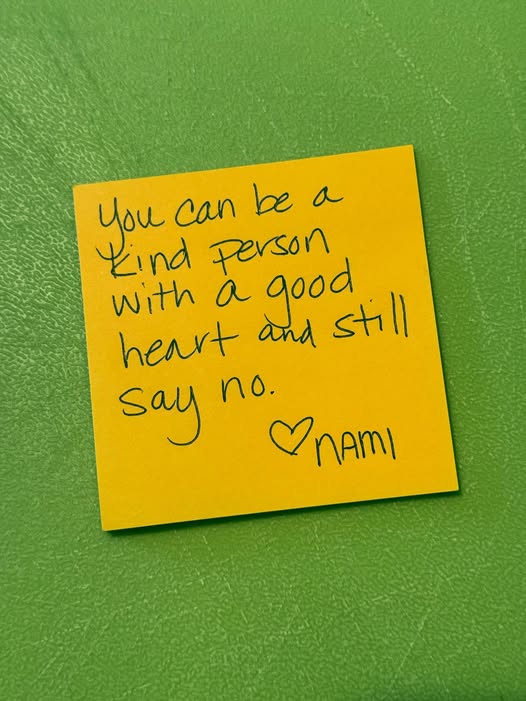 You can be a
kind person
with a good
heart and still
say no.
♡ NAMI